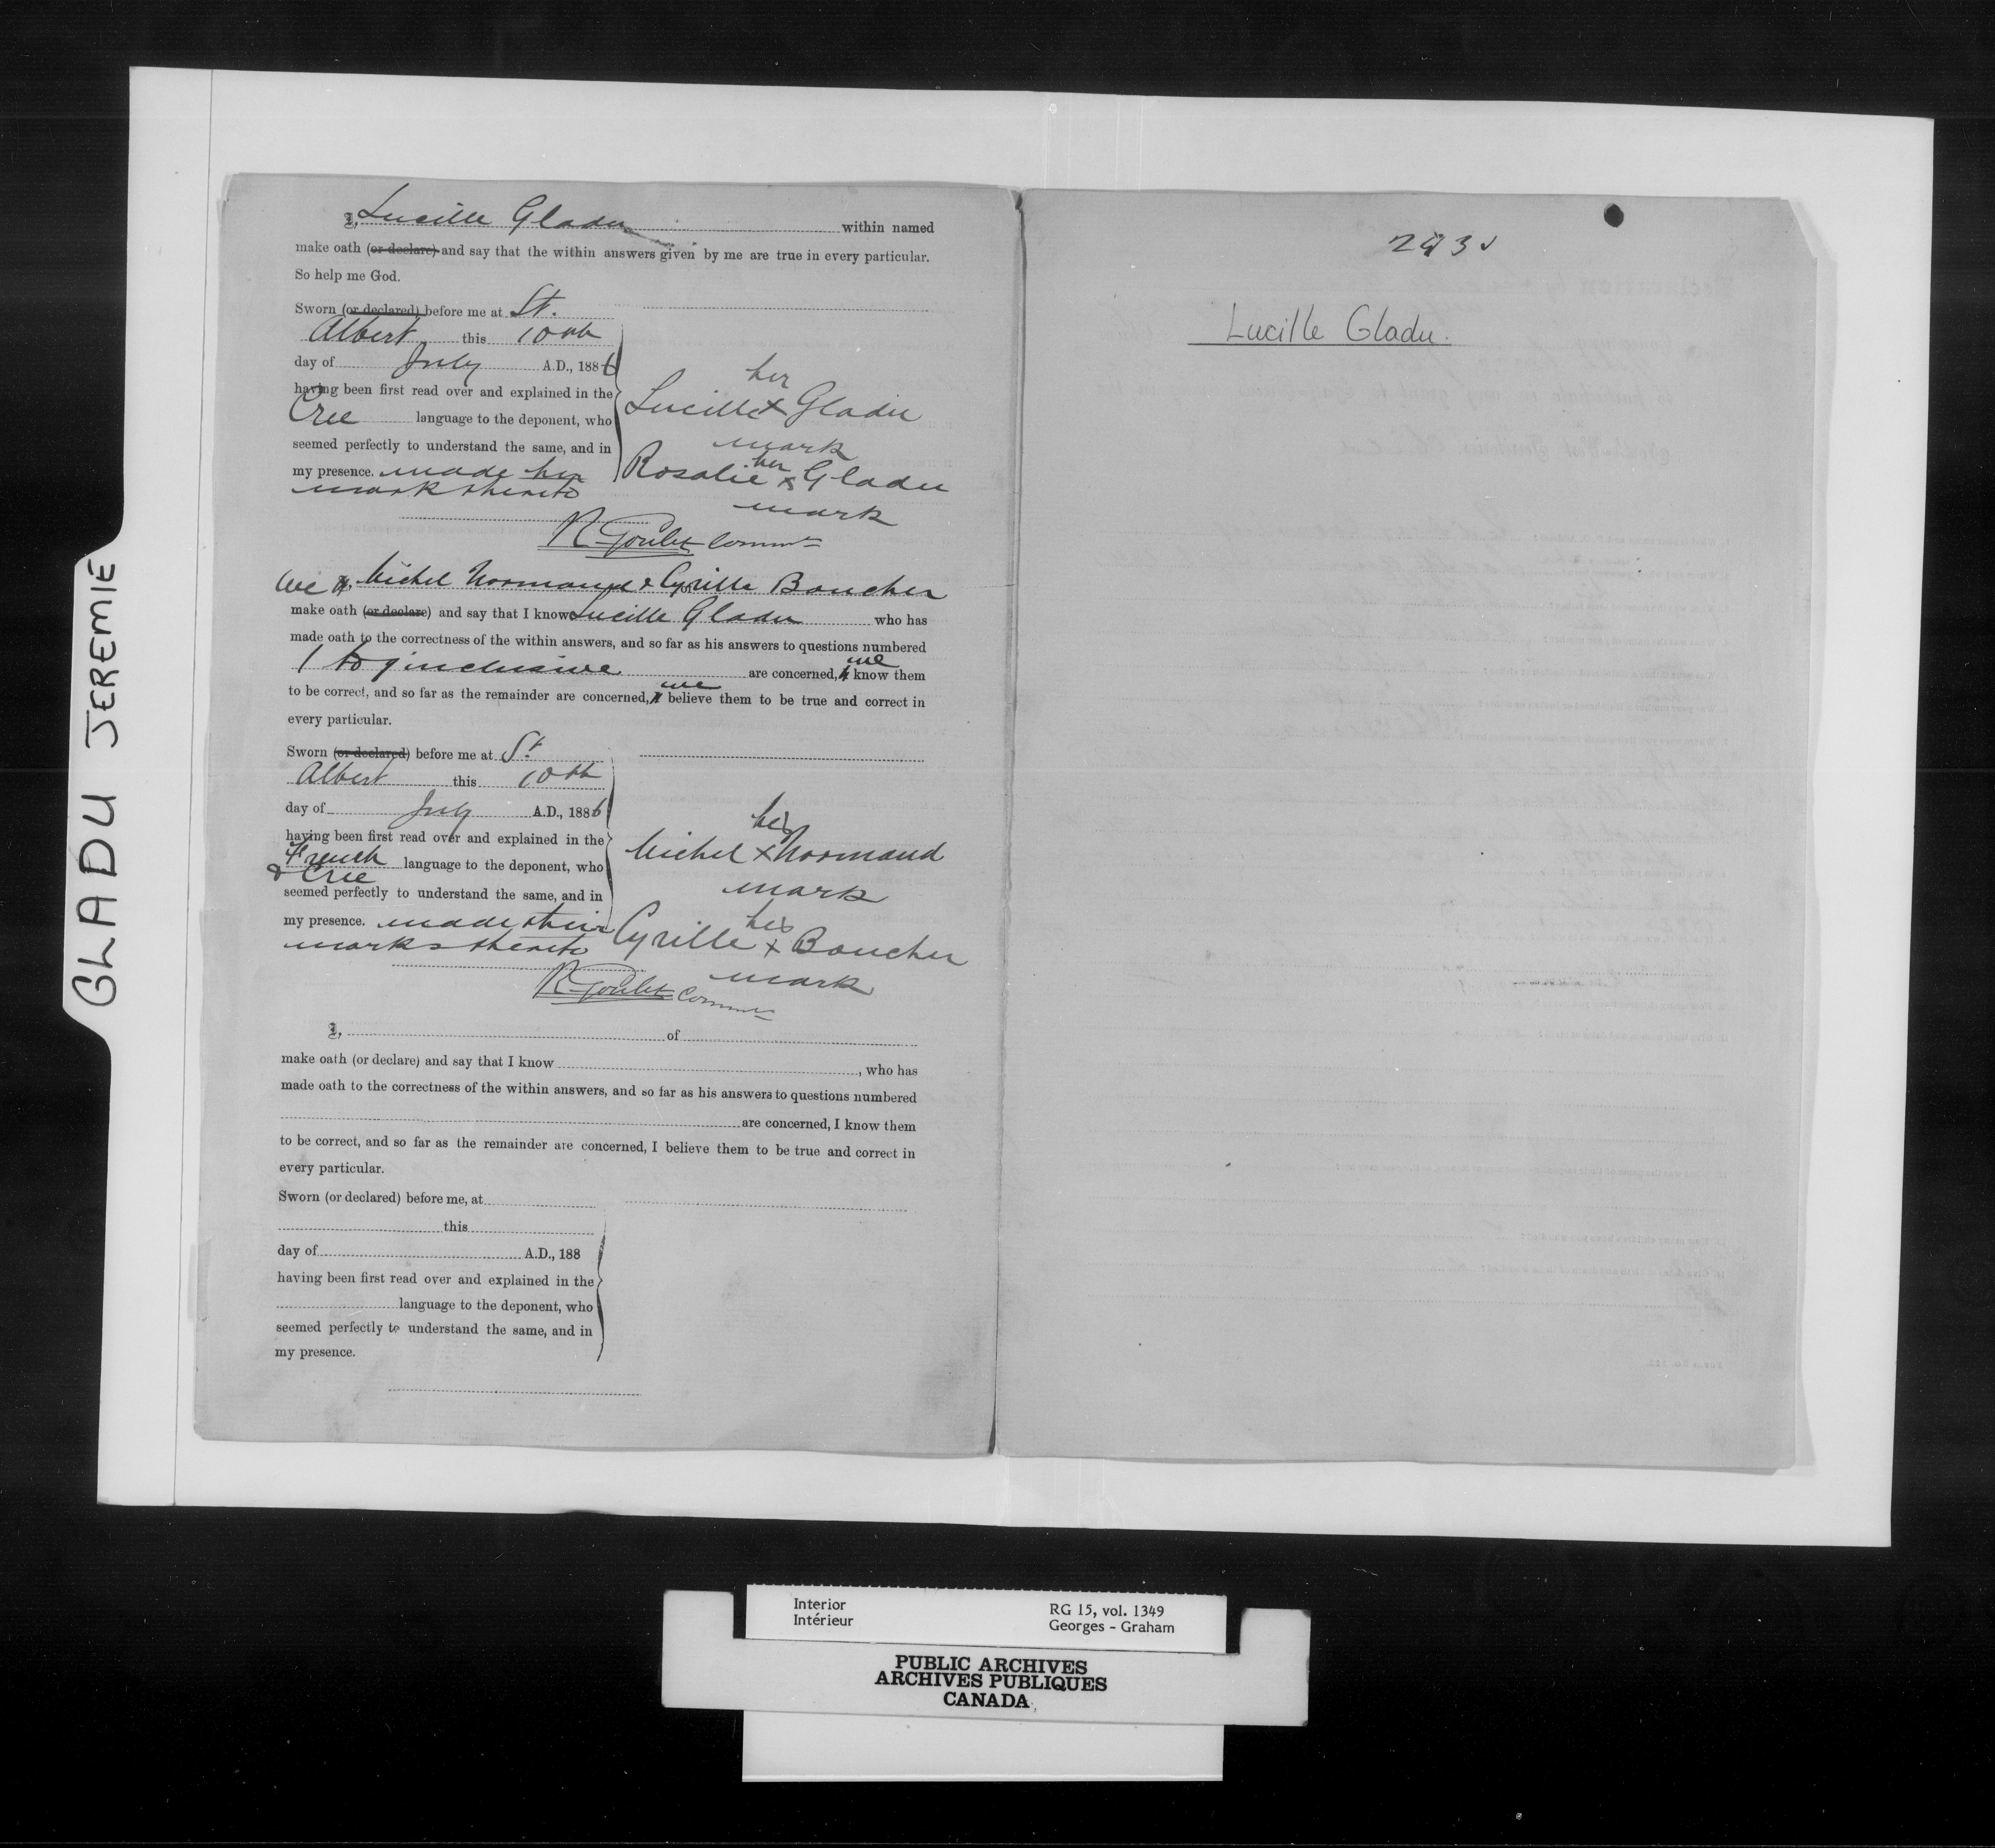 GLADU JEREMIE
I, Lucille Gladu within named
make oath (or declare) and say that the within answers given by me are true in every particular.
So help me God.
Sworn (or declared) before me at St.
Albert this 10th
day of July A.D., 1886
having been first read over and explained in the
Cree language to the deponent, who
seemed perfectly to understand the same, and in
my presence. made her
mark thereto
her
Lucille x Gladu
mark
her
Rosalie x Gladu
mark
R Goulet Commr
We I, Michel Normand & Cyrille Boucher
make oath (or declare) and say that I know Lucille Gladu who has
made oath to the correctness of the within answers, and so far as his answers to questions numbered
1 to 9 inclusive are concerned, we know them
to be correct, and so far as the remainder are concerned, we believe them to be true and correct in
every particular.
Sworn (or declared) before me at St.
Albert this 10th
day of July A.D., 1886
having been first read over and explained in the
French language to the deponent, who
& Cree
seemed perfectly to understand the same, and in
my presence. made their
marks thereto
his
Michel x Normand
mark
his
Cyrille x Boucher
mark
R Goulet Commr
I, of
make oath (or declare) and say that I know , who has
made oath to the correctness of the within answers, and so far as his answers to questions numbered
are concerned, I know them
to be correct, and so far as the remainder are concerned, I believe them to be true and correct in
every particular.
Sworn (or declared) before me, at
this
day of A.D., 188
having been first read over and explained in the
language to the deponent, who
seemed perfectly to understand the same, and in
my presence.
Lucille Gladu.
Interior
Intérieur
RG 15, vol. 1349
Georges - Graham
PUBLIC ARCHIVES
ARCHIVES PUBLIQUES
CANADA